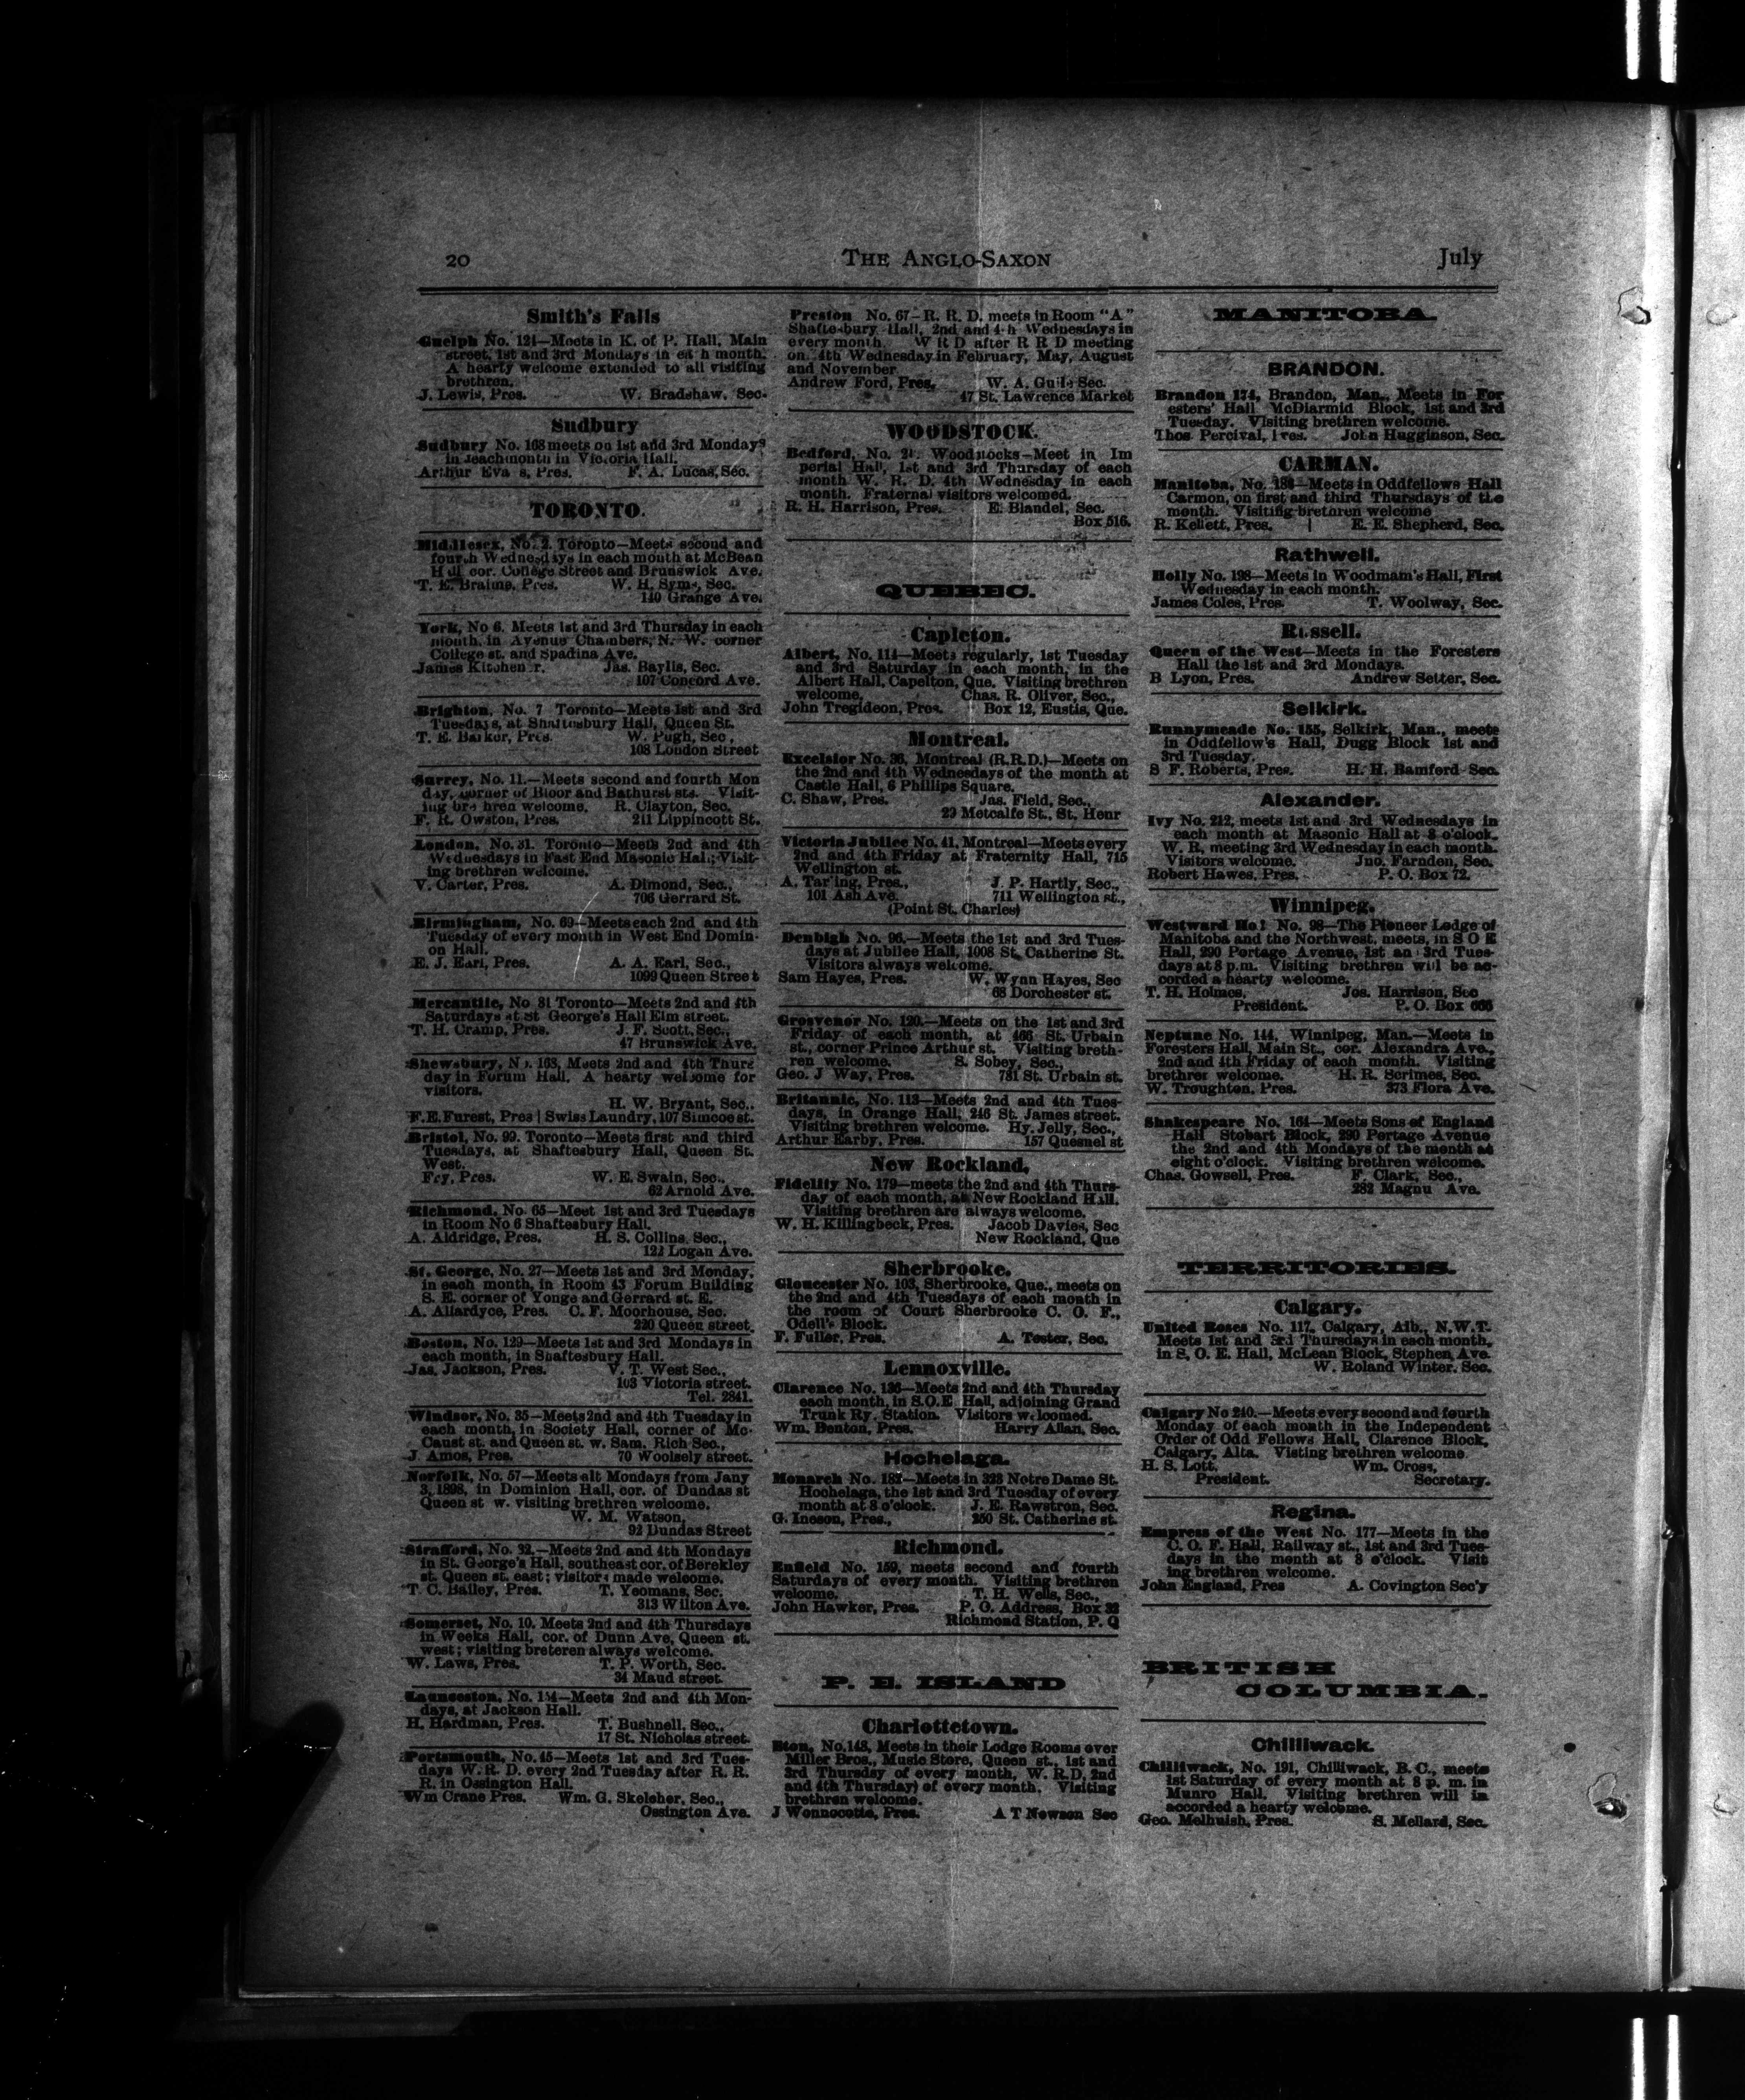 20
THE ANGLO-SAXON
July
Smith's Falls
Guelph No. 124—Meets in K. of P. Hall, Main
street, 1st and 3rd Mondays in ea h month.
A hearty welcome extended to all visiting
brethren.
J. Lewis, Pres. W. Bradshaw, Sec.
Sudbury
Sudbury No. 168 meets on 1st and 3rd Mondays
in jeachmonth in Victoria Hall.
Arthur Eva s, Pres. F. A. Lucas, Sec.
TORONTO.
Middlesex, No. 2. Toronto—Meets second and
fourth Wednesdays in each month at McBean
Hall cor. College Street and Brunswick Ave.
T. E. Braims, Pres. W. H. Syms, Sec.
140 Grange Ave.
York, No 6. Meets 1st and 3rd Thursday in each
month, in Avenue Chambers, N. W. corner
College st. and Spadina Ave.
James Kitchen r. Jas. Baylis, Sec.
107 Concord Ave.
Brighton, No. 7 Toronto—Meets 1st and 3rd
Tuesdays, at Shaftesbury Hall, Queen St.
T. E. Barker, Pres. W. Pugh, Sec,
108 London Street
Surrey, No. 11.—Meets second and fourth Mon
day, corner of Bloor and Bathurst sts. Visit-
ing bre hren welcome. R. Clayton, Sec.
F. R. Owston, Pres. 211 Lippincott St.
London, No. 31. Toronto—Meets 2nd and 4th
Wednesdays in East End Masonic Hall; Visit-
ing brethren welcome.
V. Carter, Pres. A. Dimond, Sec.,
706 Gerrard St.
Birmingham, No. 69—Meets each 2nd and 4th
Tuesday of every month in West End Domin-
on Hall.
E. J. Earl, Pres. A. A. Earl, Sec.,
1099 Queen Street
Mercantile, No 81 Toronto—Meets 2nd and 4th
Saturdays at St George's Hall Elm street.
T. H. Cramp, Pres. J. F. Scott, Sec.,
47 Brunswick Ave.
Shewsbury, No. 168, Meets 2nd and 4th Thurs
day in Forum Hall. A hearty welcome for
visitors.
H. W. Bryant, Sec.,
F. E. Furest, Pres | Swiss Laundry, 107 Simcoe st.
Bristol, No. 90. Toronto—Meets first and third
Tuesdays, at Shaftesbury Hall, Queen St.
West.
Fry, Pres. W. E. Swain, Sec.,
62 Arnold Ave.
Richmond, No. 65—Meet 1st and 3rd Tuesdays
in Room No 6 Shaftesbury Hall.
A. Aldridge, Pres. H. S. Collins, Sec.,
122 Logan Ave.
St. George, No. 27—Meets 1st and 3rd Monday,
in each month, in Room 43 Forum Building
S. E. corner of Yonge and Gerrard st. E.
A. Allardyce, Pres. C. F. Moorhouse, Sec.
220 Queen street.
Boston, No. 129—Meets 1st and 3rd Mondays in
each month, in Shaftesbury Hall.
Jas. Jackson, Pres. V. T. West Sec.,
103 Victoria street.
Tel. 2841.
Windsor, No. 35—Meets 2nd and 4th Tuesday in
each month, in Society Hall, corner of Mc-
Caust st. and Queen st. w. Sam. Rich Sec.,
J. Amos, Pres. 70 Woolsely street.
Norfolk, No. 57—Meets alt Mondays from Jany
3, 1898, in Dominion Hall, cor. of Dundas st
Queen st w. visiting brethren welcome.
W. M. Watson,
92 Dundas Street
Strafford, No. 32.—Meets 2nd and 4th Mondays
in St. George's Hall, southeast cor. of Berekley
st. Queen st. east; visitors made welcome.
T. C. Bailey, Pres. T. Yeomans, Sec.
313 Wilton Ave.
Somerset, No. 10. Meets 2nd and 4th Thursdays
in Weeks Hall, cor. of Dunn Ave, Queen st.
west; visiting breteren always welcome.
W. Laws, Pres. T. P. Worth, Sec.
34 Maud street.
Launceston, No. 154—Meets 2nd and 4th Mon-
days, at Jackson Hall.
H. Hardman, Pres. T. Bushnell, Sec.,
17 St. Nicholas street.
Portsmouth, No. 45—Meets 1st and 3rd Tues-
days W. R. D. every 2nd Tuesday after R. R.
R. in Ossington Hall.
Wm Crane Pres. Wm. G. Skelcher, Sec.,
Ossington Ave.
Preston No. 67—R. R. D. meets in Room "A"
Shaftesbury Hall, 2nd and 4 h Wednesdays in
every month. W R D after R R D meeting
on 4th Wednesday in February, May, August
and November
Andrew Ford, Pres, W. A. Guils Sec.
47 St. Lawrence Market
WOODSTOCK.
Bedford, No. 21. Woodstocks—Meet in Im
perial Hall, 1st and 3rd Thursday of each
month W. R. D. 4th Wednesday in each
month. Fraternal visitors welcomed.
R. H. Harrison, Pres. E. Blandel, Sec.
Box 516.
QUEBEC.
Capleton.
Albert, No. 114—Meets regularly, 1st Tuesday
and 3rd Saturday in each month, in the
Albert Hall, Capelton, Que. Visiting brethren
welcome. Chas. R. Oliver, Sec.,
John Tregideon, Pres. Box 12, Eustis, Que.
Montreal.
Excelsior No. 36, Montreal (R.R.D.)—Meets on
the 2nd and 4th Wednesdays of the month at
Castle Hall, 6 Phillips Square.
C. Shaw, Pres. Jas. Field, Sec.,
29 Metcalfe St., St. Henr
Victoria Jubilee No. 41, Montreal—Meets every
2nd and 4th Friday at Fraternity Hall, 715
Wellington st.
A. Tarling, Pres., J. P. Hartly, Sec.,
101 Ash Ave. 711 Wellington st.,
(Point St. Charles)
Denbigh No. 96.—Meets the 1st and 3rd Tues-
days at Jubilee Hall, 1008 St. Catherine St.
Visitors always welcome.
Sam Hayes, Pres. W. Wynn Hayes, Sec
68 Dorchester st.
Grosvenor No. 120.—Meets on the 1st and 3rd
Friday of each month, at 466 St. Urbain
st., corner Prince Arthur st. Visiting breth-
ren welcome. S. Sobey, Sec.,
Geo. J Way, Pres. 781 St. Urbain st.
Britannic, No. 113—Meets 2nd and 4th Tues-
days, in Orange Hall, 246 St. James street.
Visiting brethren welcome. Hy. Jelly, Sec.,
Arthur Earby, Pres. 157 Quesnel st
New Rockland,
Fidelity No. 179—meets the 2nd and 4th Thurs-
day of each month, at New Rockland Hall.
Visiting brethren are always welcome.
W. H. Killingbeck, Pres. Jacob Davies, Sec
New Rockland, Que
Sherbrooke.
Gloucester No. 103, Sherbrooke, Que., meets on
the 2nd and 4th Tuesdays of each month in
the room of Court Sherbrooke C. O. F.,
Odell's Block.
F. Fuller, Pres. A. Tester, Sec.
Lennoxville.
Clarence No. 136—Meets 2nd and 4th Thursday
each month, in S.O.E Hall, adjoining Grand
Trunk Ry. Station. Visitors welcomed.
Wm. Benton, Pres. Harry Allan, Sec.
Hochelaga.
Monarch No. 182—Meets in 323 Notre Dame St.
Hochelaga, the 1st and 3rd Tuesday of every
month at 8 o'clock. J. E. Rawstron, Sec.
G. Ineson, Pres., 250 St. Catherine st.
Richmond.
Enfield No. 159, meets second and fourth
Saturdays of every month. Visiting brethren
welcome. T. H. Wells, Sec.,
John Hawker, Pres. P. O. Address, Box 32
Richmond Station, P. Q
P. E. ISLAND
Charlottetown.
Eton, No. 143, Meets in their Lodge Rooms over
Miller Bros., Music Store, Queen st., 1st and
3rd Thursday of every month, W. R.D, 2nd
and 4th Thursday) of every month. Visiting
brethren welcome.
J Wonnocotte, Pres. A T Newson Sec
MANITOBA.
BRANDON.
Brandon 174, Brandon, Man., Meets in For
esters' Hall McDiarmid Block, 1st and 3rd
Tuesday. Visiting brethren welcome.
Thos Percival, Pres. John Hugginson, Sec.
CARMAN.
Manitoba, No. 188—Meets in Oddfellows Hall
Carmon, on first and third Thursdays of the
month. Visiting brethren welcome
R. Kellett, Pres. | E. E. Shepherd, Sec.
Rathwell.
Holly No. 198—Meets in Woodmam's Hall, First
Wednesday in each month.
James Coles, Pres. T. Woolway, Sec.
Russell.
Queen of the West—Meets in the Foresters
Hall the 1st and 3rd Mondays.
B Lyon, Pres. Andrew Setter, Sec.
Selkirk.
Runnymeade No. 155, Selkirk, Man., meets
in Oddfellow's Hall, Dugg Block 1st and
3rd Tuesday.
S F. Roberts, Pres. H. H. Bamford Sec.
Alexander.
Ivy No. 212, meets 1st and 3rd Wednesdays in
each month at Masonic Hall at 8 o'clock.
W. R. meeting 3rd Wednesday in each month.
Visitors welcome. Jno. Farnden, Sec.
Robert Hawes, Pres. P. O. Box 72.
Winnipeg.
Westward Ho! No. 98—The Pioneer Lodge of
Manitoba and the Northwest, meets, in S O E
Hall, 290 Portage Avenue, 1st an 3rd Tues-
days at 8 p.m. Visiting brethren will be ac-
corded a hearty welcome.
T. H. Holmes, Jos. Harrison, Sec
President. P. O. Box 666
Neptune No. 144, Winnipeg, Man.—Meets in
Foresters Hall, Main St., cor. Alexandra Ave.,
2nd and 4th Friday of each month. Visiting
brethren welcome. H. R. Scrimes, Sec.
W. Troughton, Pres. 373 Flora Ave.
Shakespeare No. 164—Meets Sons of England
Hall Stobart Block, 290 Portage Avenue
the 2nd and 4th Mondays of the month at
eight o'clock. Visiting brethren welcome.
Chas. Gowsell, Pres. F. Clark, Sec.,
282 Magnu Ave.
TERRITORIES.
Calgary.
United Roses No. 117, Calgary, Alb., N.W.T.
Meets 1st and 3rd Thursdays in each month,
in S. O. E. Hall, McLean Block, Stephen Ave.
W. Roland Winter, Sec.
Calgary No 240.—Meets every second and fourth
Monday of each month in the Independent
Order of Odd Fellows Hall, Clarence Block,
Calgary, Alta. Visting brethren welcome.
H. S. Lott, Wm. Cross,
President. Secretary.
Regina.
Empress of the West No. 177—Meets in the
C. O. F. Hall, Railway st., 1st and 3rd Tues-
days in the month at 8 o'clock. Visit
ing brethren welcome.
John England, Pres A. Covington Sec'y
BRITISH
COLUMBIA.
Chilliwack.
Chilliwack, No. 191, Chilliwack, B. C., meets
1st Saturday of every month at 8 p. m. in
Munro Hall. Visiting brethren will in
accorded a hearty welcome.
Geo. Melhuish, Pres. S. Mellard, Sec.